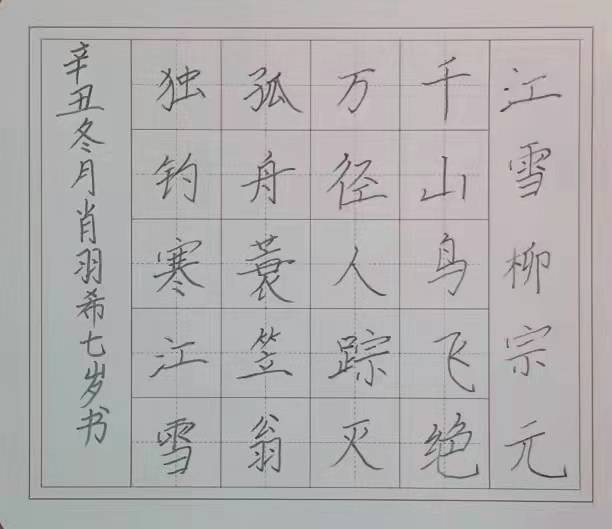 江雪 柳宗元
千山鸟飞绝
万径人踪灭
孤舟蓑笠翁
独钓寒江雪
辛丑冬月肖羽希七岁书